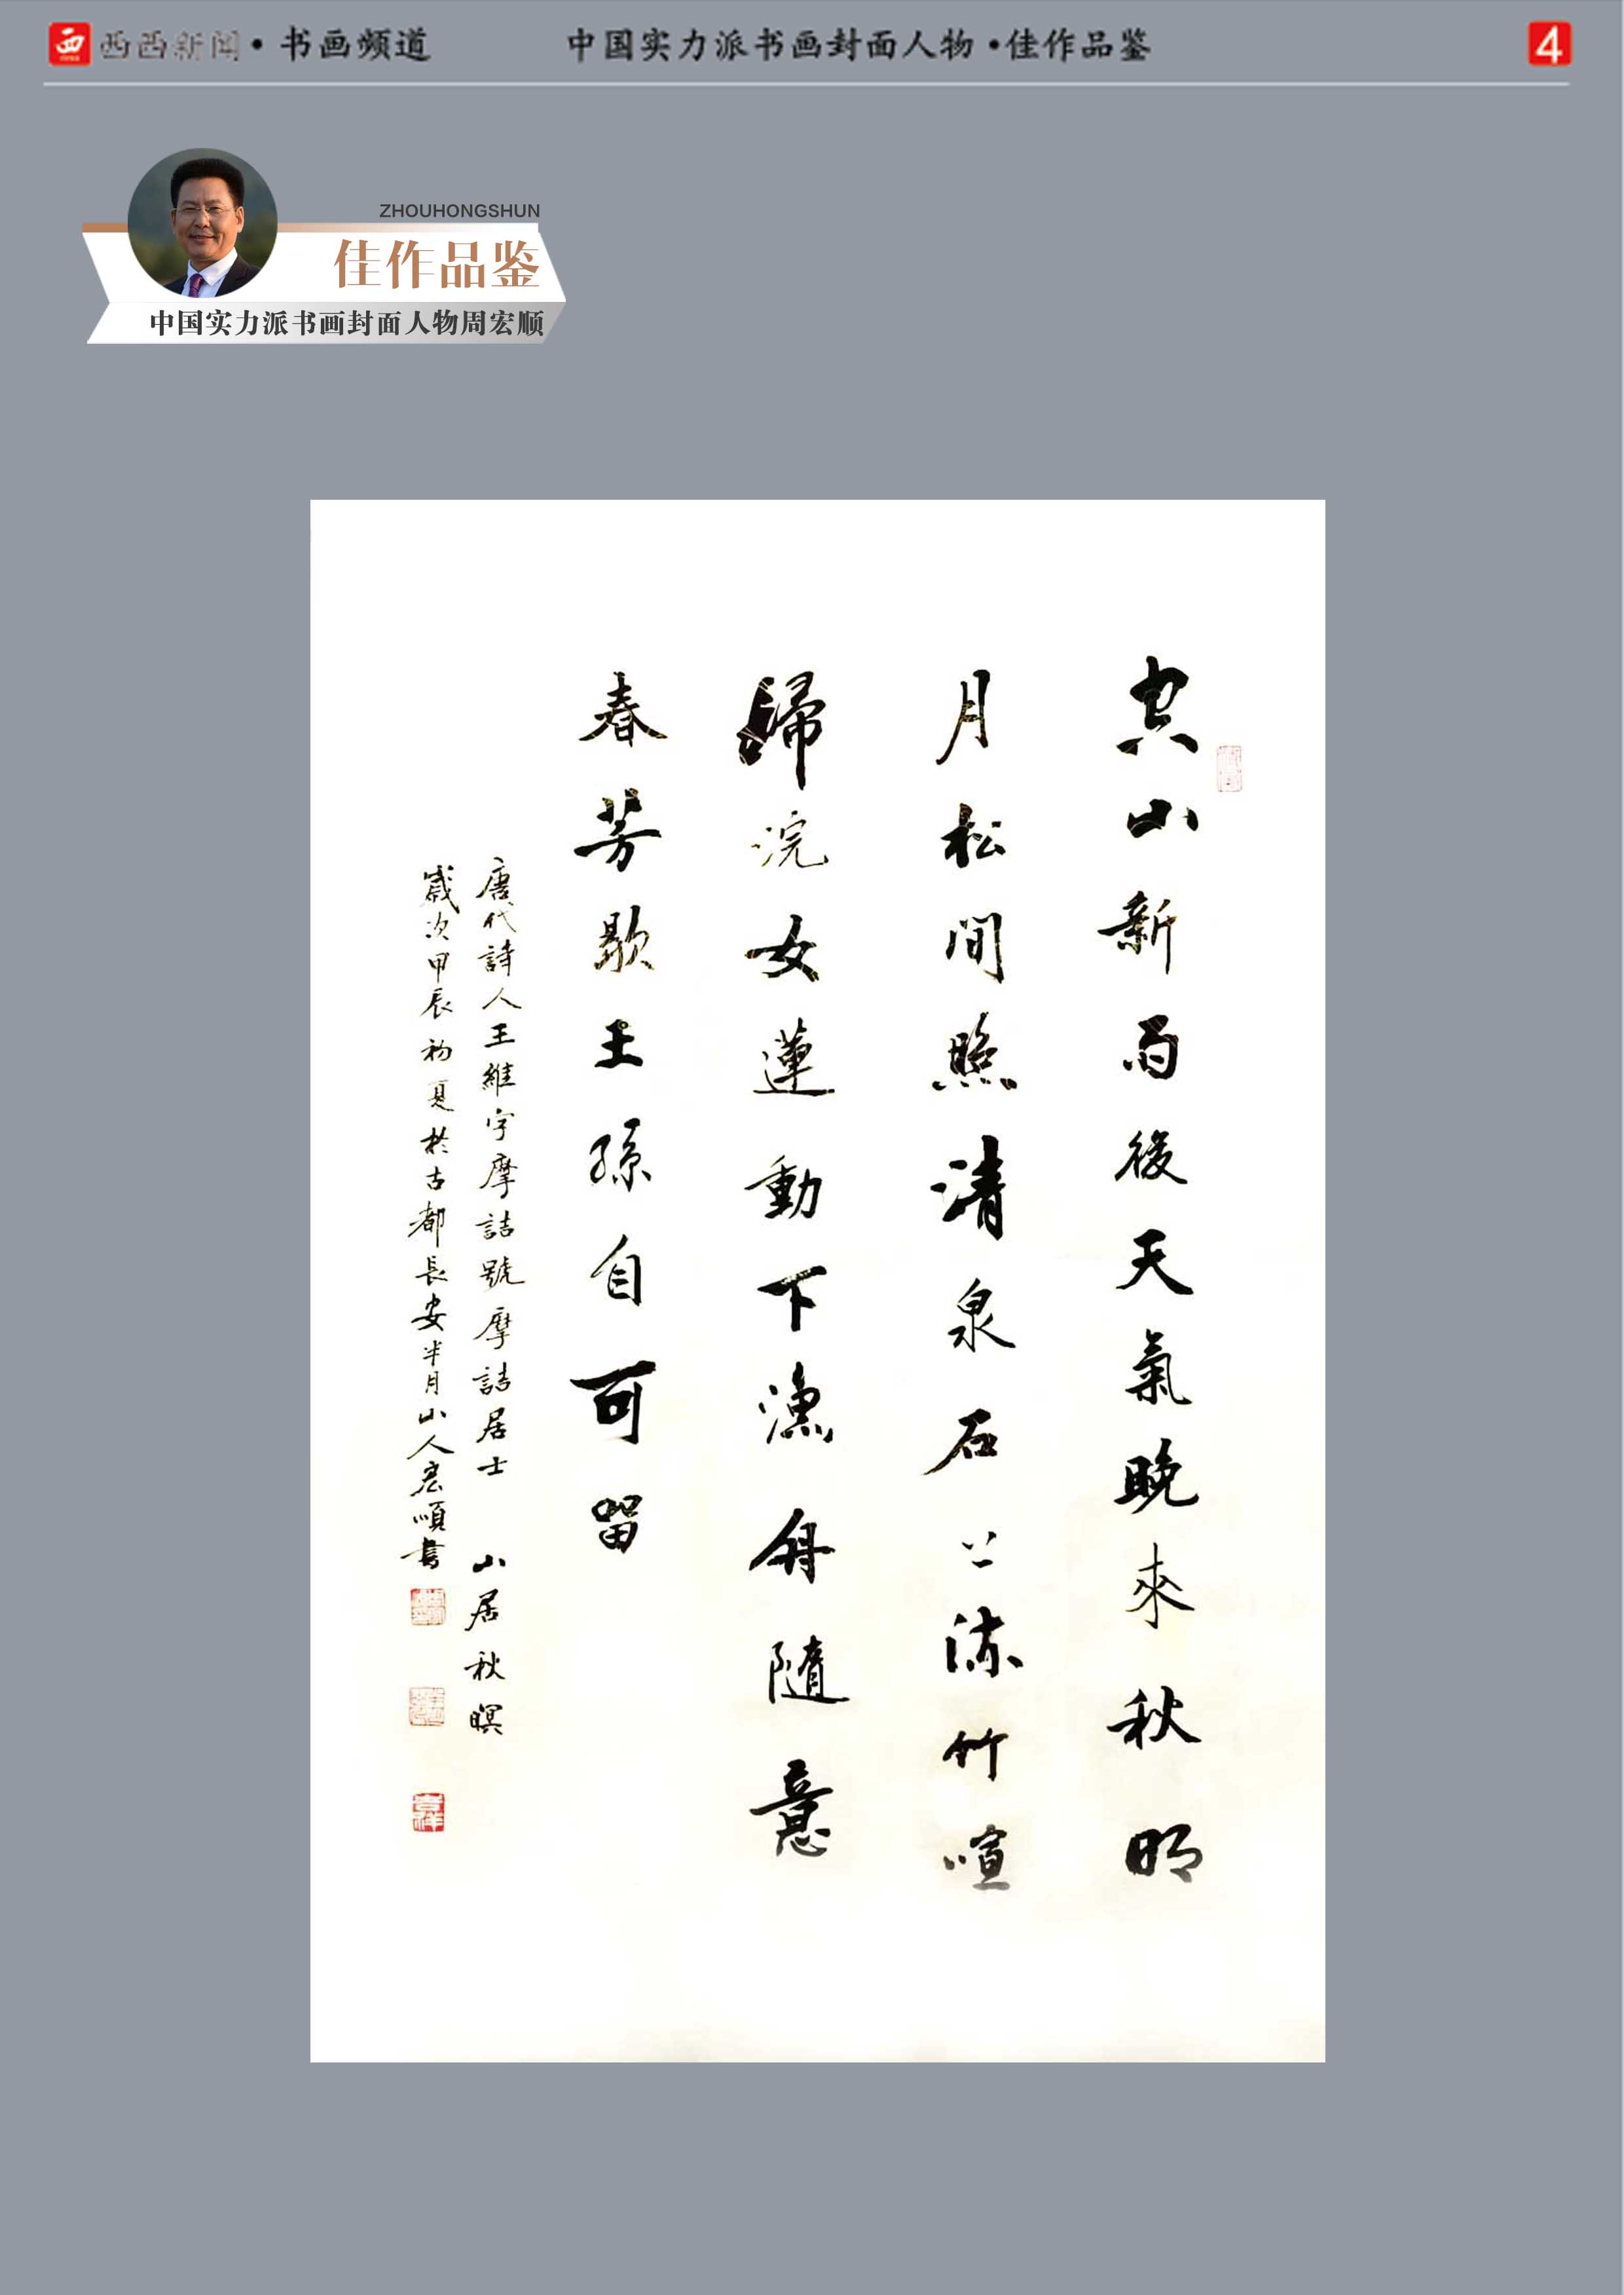 西
西西新闻·书画频道
中国实力派书画封面人物·佳作品鉴
4
ZHOUHONGSHUN
佳作品鉴
中国实力派书画封面人物周宏顺
空山新雨後天氣晚來秋明
月松間照清泉石上流竹喧
歸浣女蓮動下漁舟隨意
春芳歇王孫自可留
唐代詩人王維字摩詰號摩詰居士 山居秋暝
歲次甲辰初夏於古都長安半月山人宏順書
吉祥